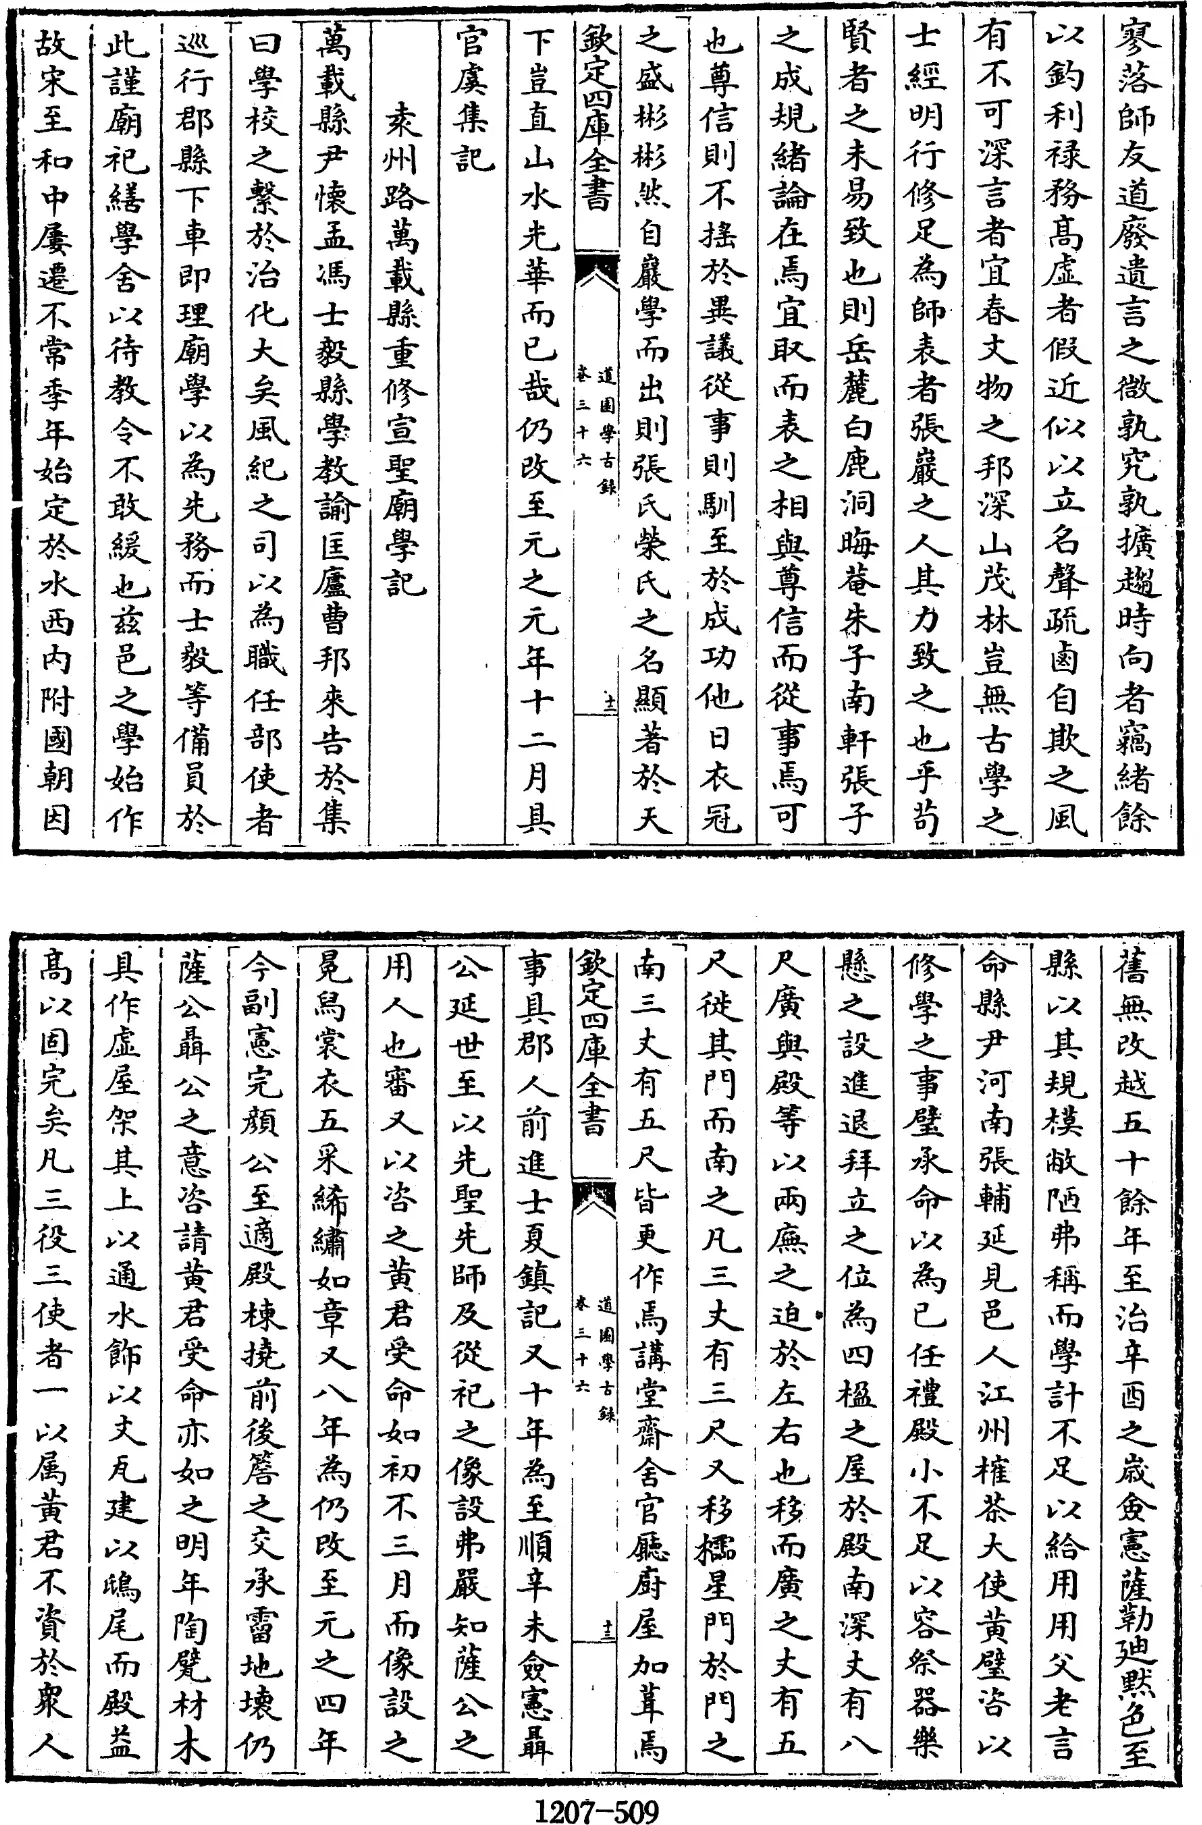 寥落師友道廢遺言之微孰究孰擴趨時向者竊緒餘
以釣利禄務髙虚者假近似以立名聲疏鹵自欺之風
有不可深言者宜春文物之邦深山茂林豈無古學之
士經明行修足為師表者張巖之人其力致之也乎茍
賢者之未易致也則岳麓白鹿洞晦菴朱子南軒張子
之成規緒論在焉宜取而表之相與尊信而從事焉可
也尊信則不搖於異議從事則馴至於成功他日衣冠
之盛彬彬然自巖學而出則張氏榮氏之名顯著於天
欽定四庫全書
道園學古錄
卷三十六
十二
下豈直山水光華而已哉仍改至元之元年十二月具
官虞集記
袁州路萬載縣重修宣聖廟學記
萬載縣尹懷孟馮士毅縣學教諭匡廬曹邦來告於集
曰學校之繫於治化大矣風紀之司以為職任部使者
巡行郡縣下車即理廟學以為先務而士毅等備員於
此謹廟祀繕學舍以待教令不敢緩也兹邑之學始作
故宋至和中屢遷不常季年始定於水西内附國朝因
舊無改越五十餘年至治辛酉之歳僉憲薩勒廸黙色至
縣以其規模敝陋弗稱而學計不足以給用用父老言
命縣尹河南張輔延見邑人江州榷茶大使黄璧咨以
修學之事璧承命以為己任禮殿小不足以容祭器樂
懸之設進退拜立之位為四楹之屋於殿南深丈有八
尺廣與殿等以兩廡之迫於左右也移而廣之丈有五
尺徙其門而南之凡三丈有三尺又移櫺星門於門之
南三丈有五尺皆更作焉講堂齋舍官廳廚屋加葺焉
欽定四庫全書
道園學古錄
卷三十六
十三
事具郡人前進士夏鎮記又十年為至順辛未僉憲聶
公延世至以先聖先師及從祀之像設弗嚴知薩公之
用人也審又以咨之黄君受命如初不三月而像設之
冕舄裳衣五采絺繡如章又八年為仍改至元之四年
今副憲完顔公至適殿棟撓前後簷之交承霤地壊仍
薩公聶公之意咨請黄君受命亦如之明年陶甓材木
具作虚屋架其上以通水飾以文瓦建以鴟尾而殿益
髙以固完矣凡三役三使者一以属黄君不資於衆人
1207-509